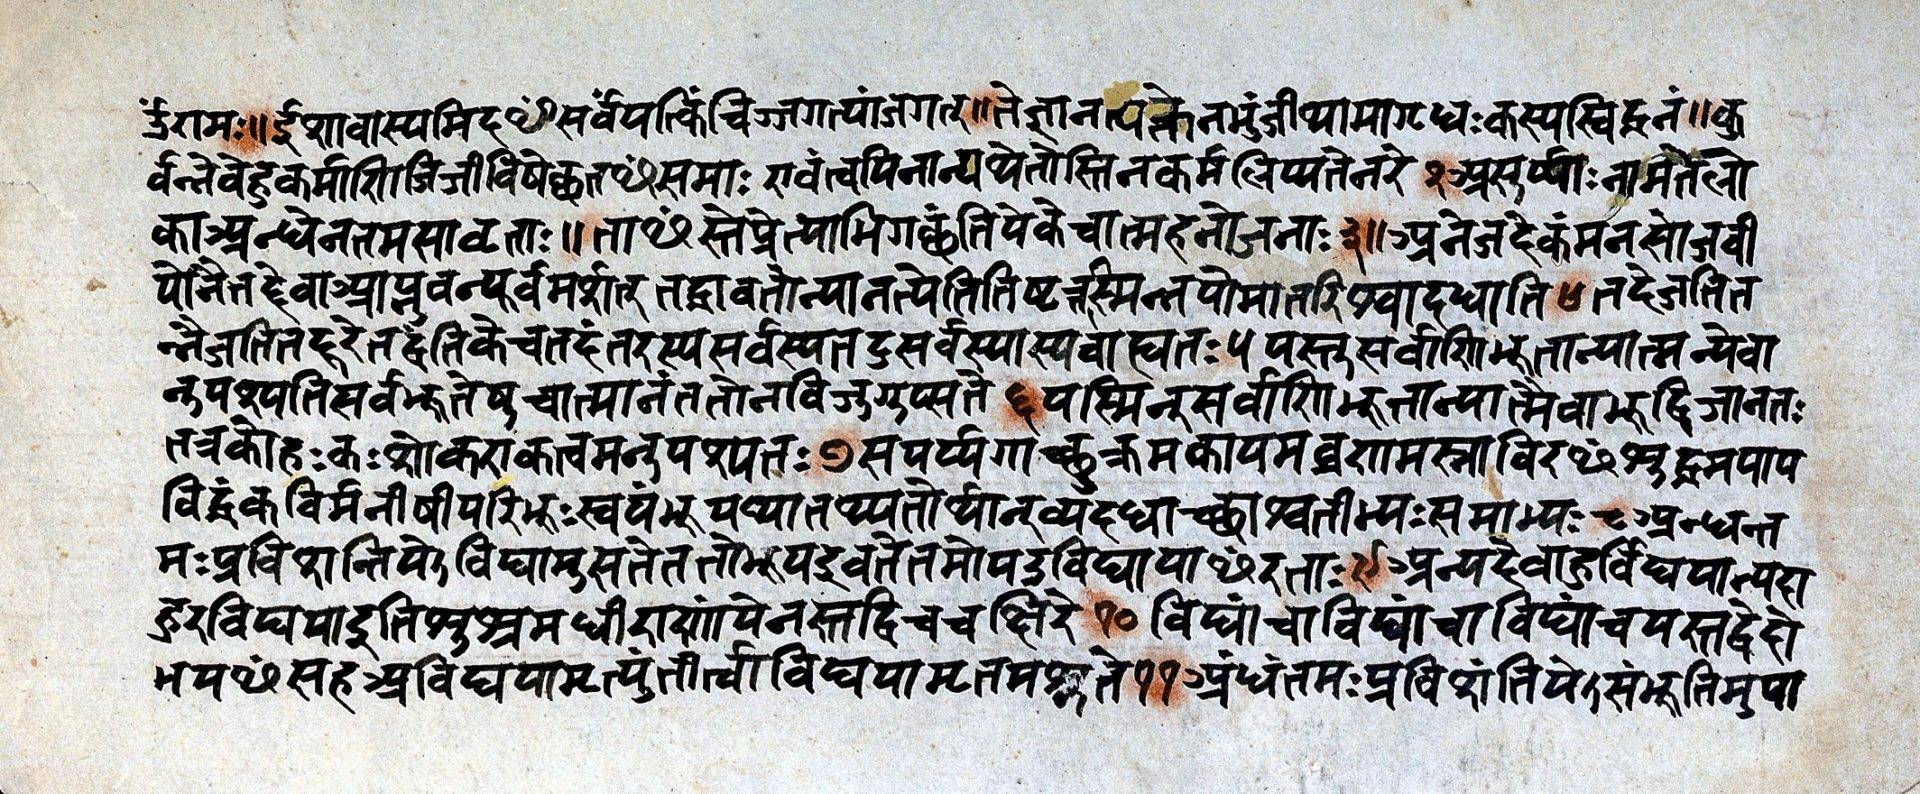 ॐरामः॥ईशावास्यमिदꣳसर्वंयत्किंचिज्जगत्यांजगत्॥तेनत्यक्तेनभुंजीथामागृधःकस्यस्विद्धनं॥कु
र्वन्नेवेहकर्माणिजिजीविषेच्छतꣳसमाः एवंत्वयिनान्यथेतोस्तिनकर्मलिप्यतेनरे २असुर्य्याःनामतेलो
काअन्धेनतमसावृताः॥ताꣳस्तेप्रेत्याभिगच्छंतियेकेचात्महनोजनाः३॥अनेजदेकंमनसोजवी
योनैनद्देवाआप्नुवन्पूर्वमर्शत् तद्धावतोन्यानत्येतितिष्टत्तस्मिन्नपोमातरिश्वादधाति ४ तदेजतित
न्नैजतितद्दूरेतद्वंतिकेचतदंतरस्यसर्वस्यतदुसर्वस्यास्यबाह्यतः५ यस्तुसर्वाणिभूतान्यात्मन्येवा
नुपश्यतिसर्वभूतेषुचात्मानंततोनविजुगुप्सते ६यस्मिन्सर्वाणिभूतान्यात्मैवाभूद्विजानतः
तत्रकोहःकःशोकएकत्वमनुपश्यतः७सपर्य्यगाच्छुक्रमकायमव्रणमस्नाविरꣳशुद्धमपाप
विद्धंकविर्मनीषीपरिभूःस्वयंभूयथातथ्यतोर्थान्व्यदधाच्छाश्वतीभ्यःसमाभ्यः ८अन्धन्त
मःप्रविशान्तियेऽविद्यामुसतेततोभूयइवतेतमोयउविद्यायाꣳरताः९अन्यदेवाहुर्विद्ययान्यदा
हुरविद्ययाइतिशुश्रमधीराणांयेनस्तद्विचचक्षिरे १० विद्यांचाविद्यांचाविद्यांचयस्तद्वेदो
भयꣳसहअविद्ययामृत्युंतीर्त्वाविद्ययामृतमश्नुते११अंधंतमःप्रविशंतियेऽसंभूतिमुपा